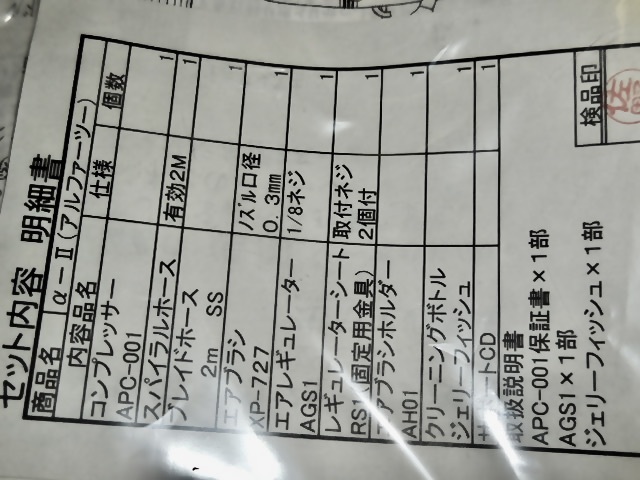 セット内容 明細書
商品名 α-Ⅱ(アルファーツー)
内容品名 仕様 個数
コンプレッサー
APC-001 1
スパイラルホース 有効2M 1
ブレイドホース
2m SS 1
エアブラシ ノズル口径
XP-727 0.3mm 1
エアレギュレーター 1/8ネジ
AGS1 1
レギュレーターシート 取付ネジ
RS 固定用金具) 2個付 1
エアブラシホルダー
AH01 1
クリーニングボトル
ジェリーフィッシュ 1
サポートCD 1
取扱説明書
APC-001保証書×1部
AGS1×1部
ジェリーフィッシュ×1部
検品印